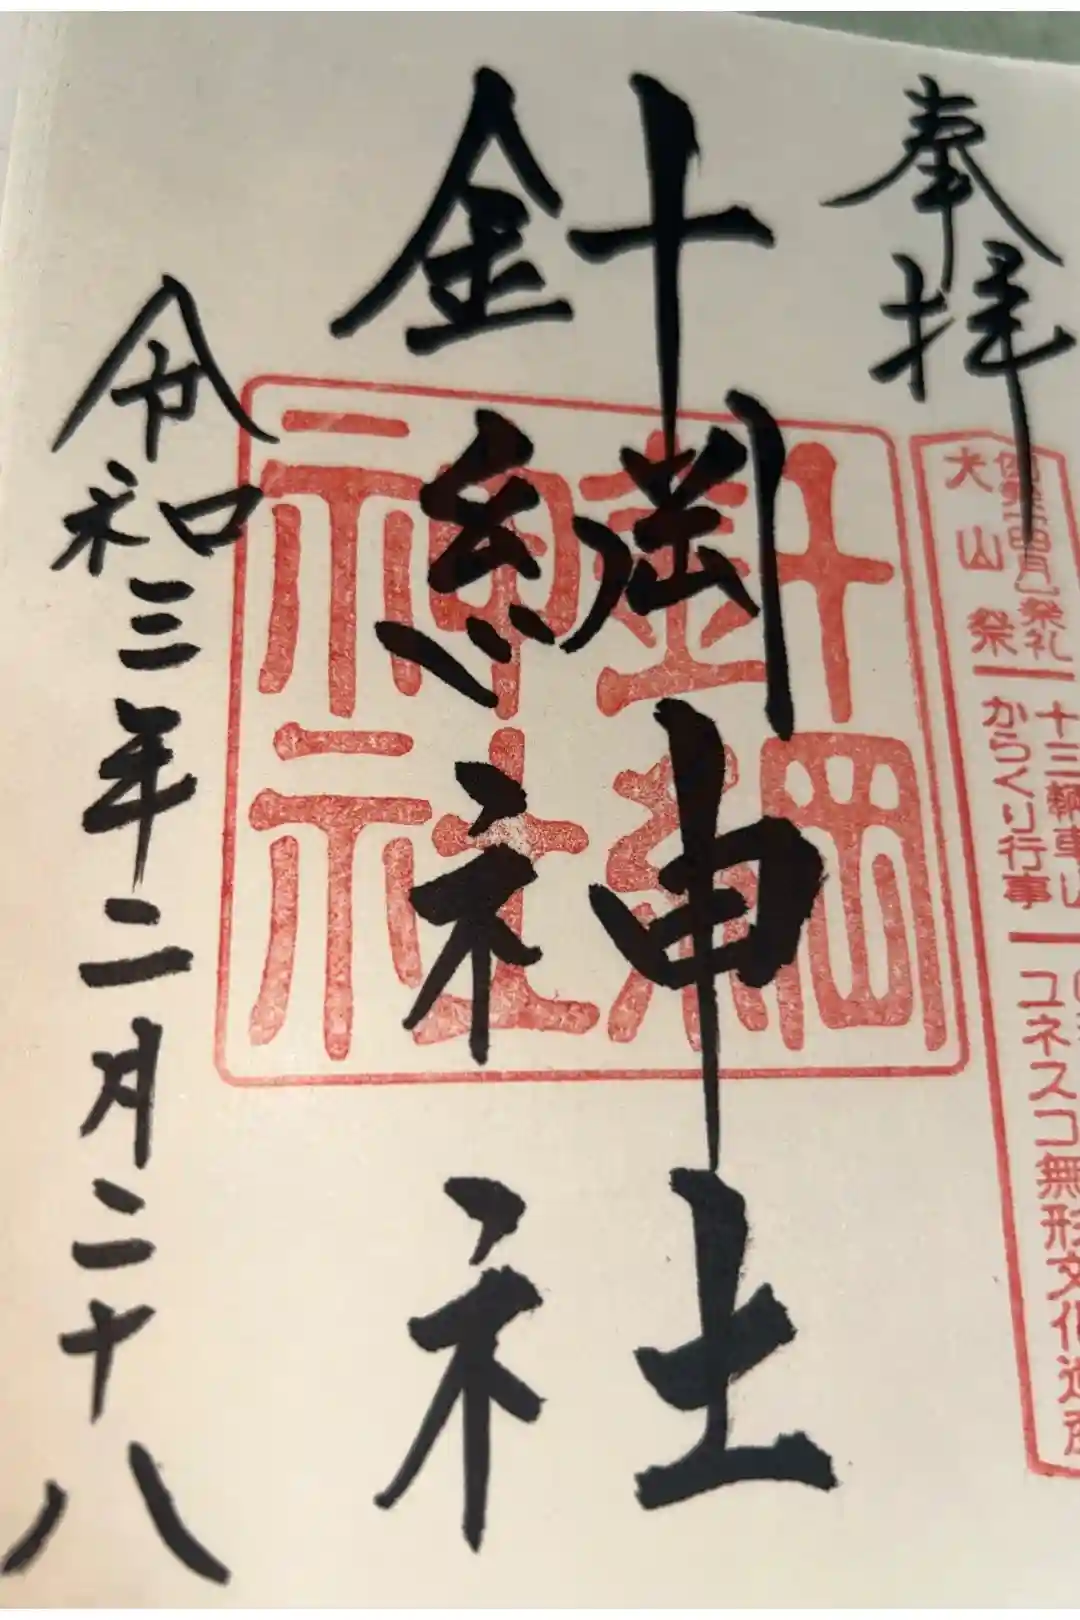 奉拝
大山祭
祭礼
十三輌車
からくり行事
ユネスコ無形文化遺産
針綱神社
針綱神社
令和三年二月二十八